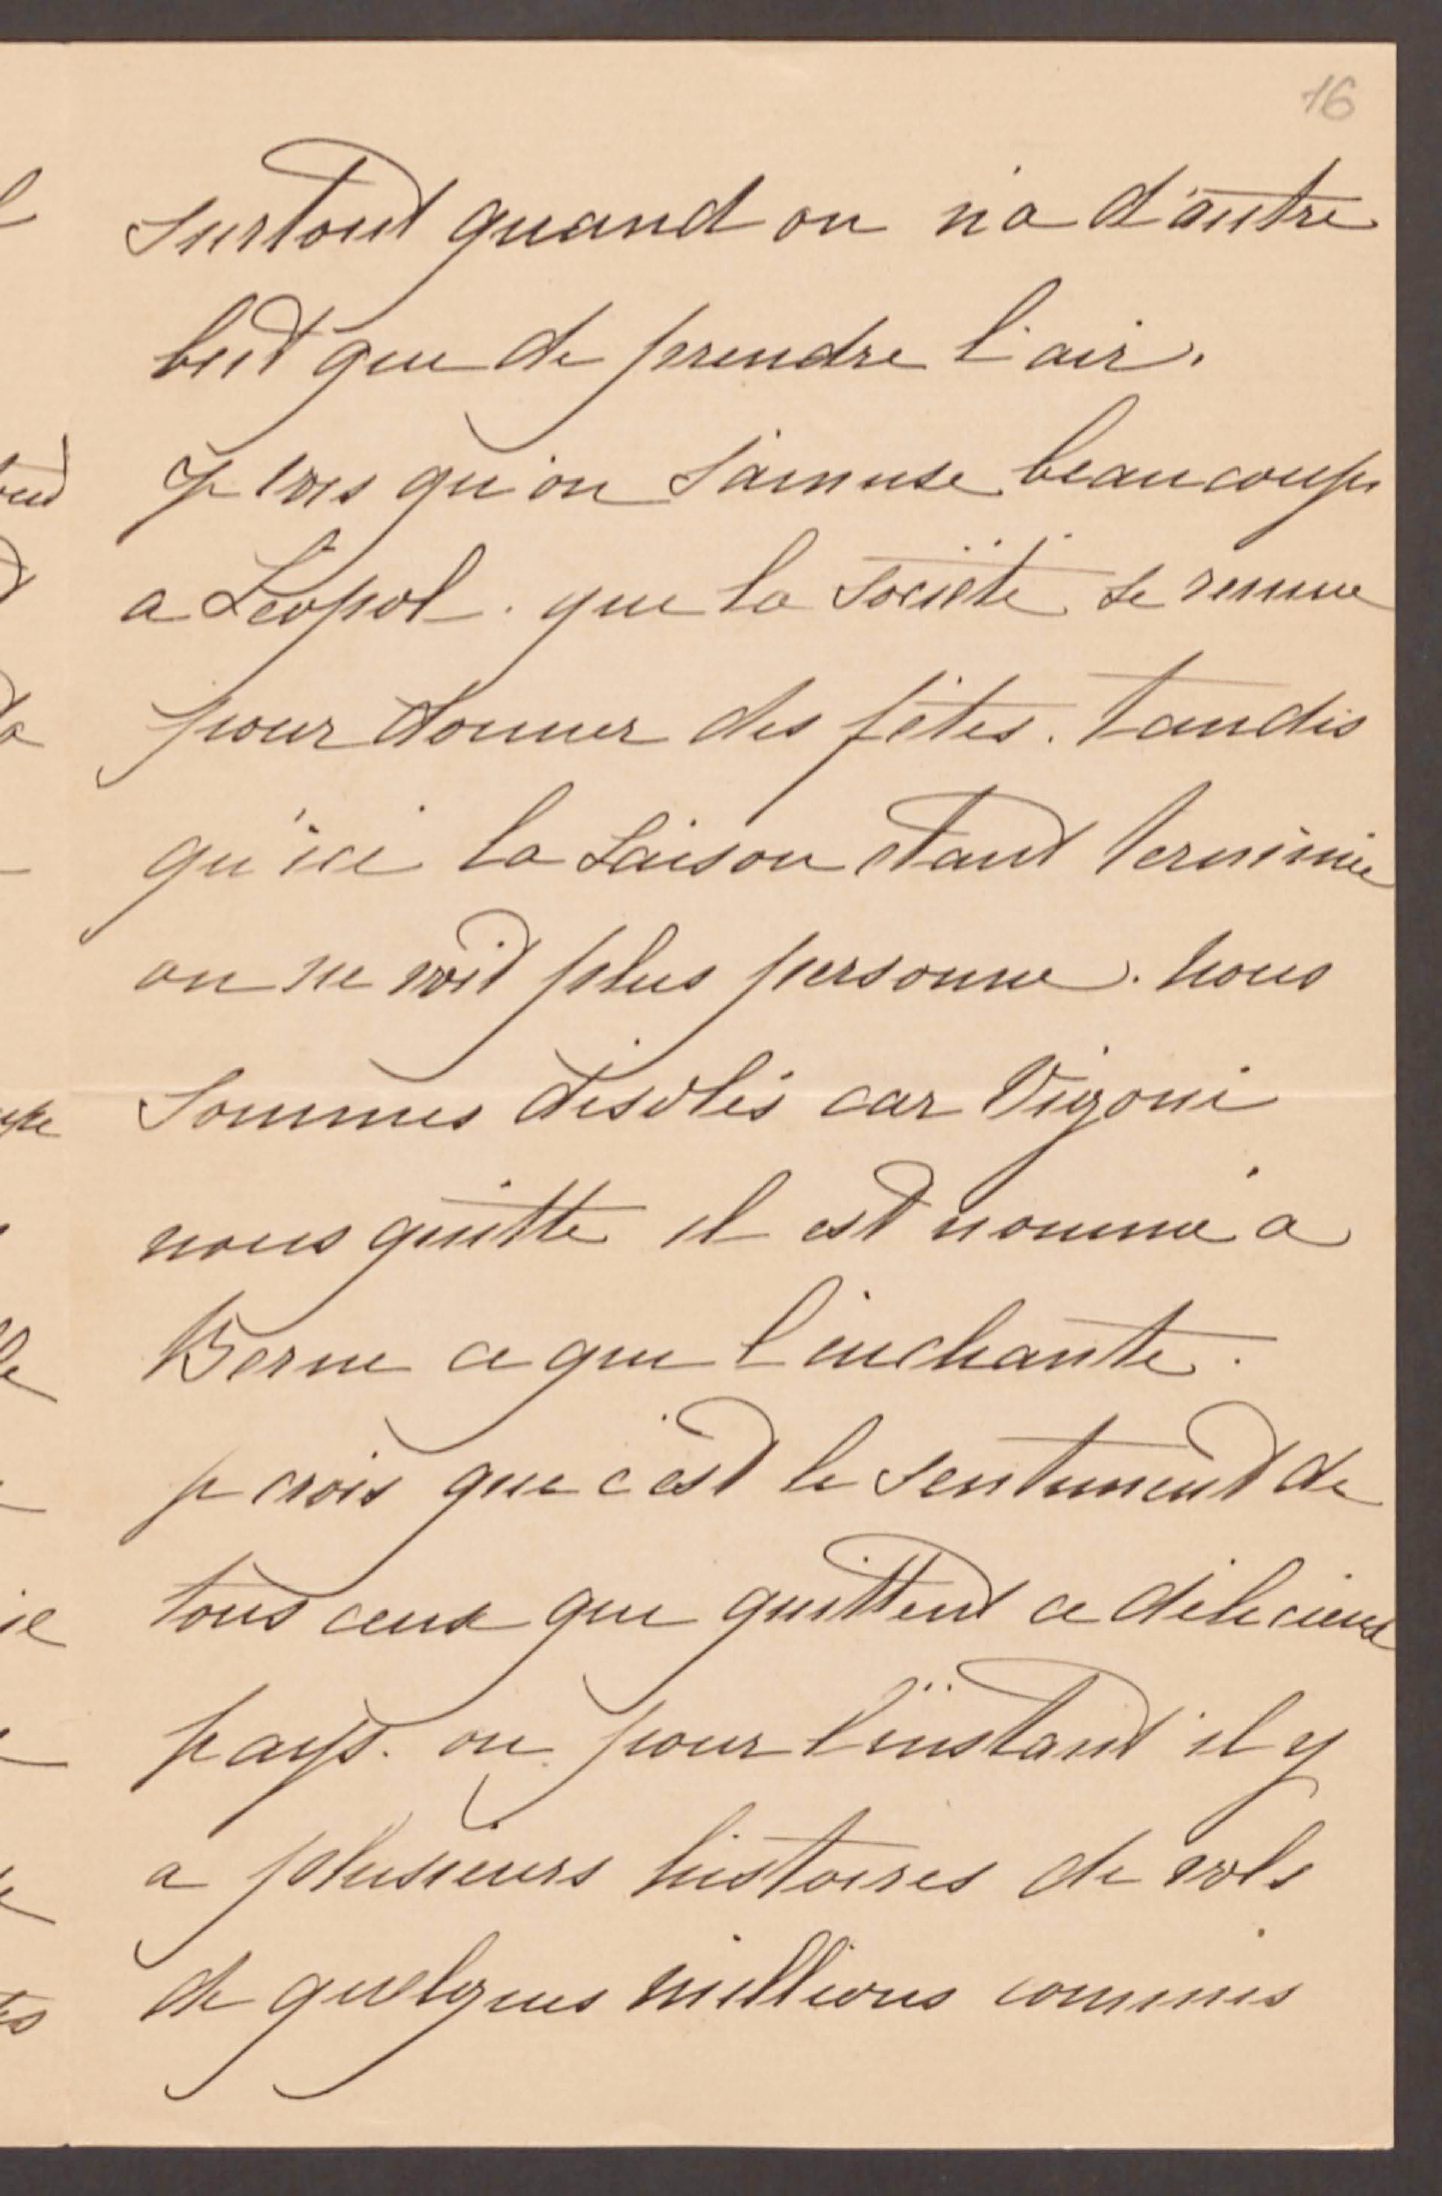 16
surtout quand on n'a d'autre
but que de prendre l'air.
Je vois qu'on s'amuse beaucoup
a Léopol. que la société se remue
pour donner des fêtes. tandis
qu'ici la saison étant terminée
on ne voit plus personne. nous
sommes désolés car Vigoni
nous quitte il est nommé à
Berne ce qui l'enchante.
je crois que c'est le sentiment de
tous ceux qui quittent ce délicieux
pays. où pour l'instant il y
a plusieurs histoires de vols
de quelques millions commis